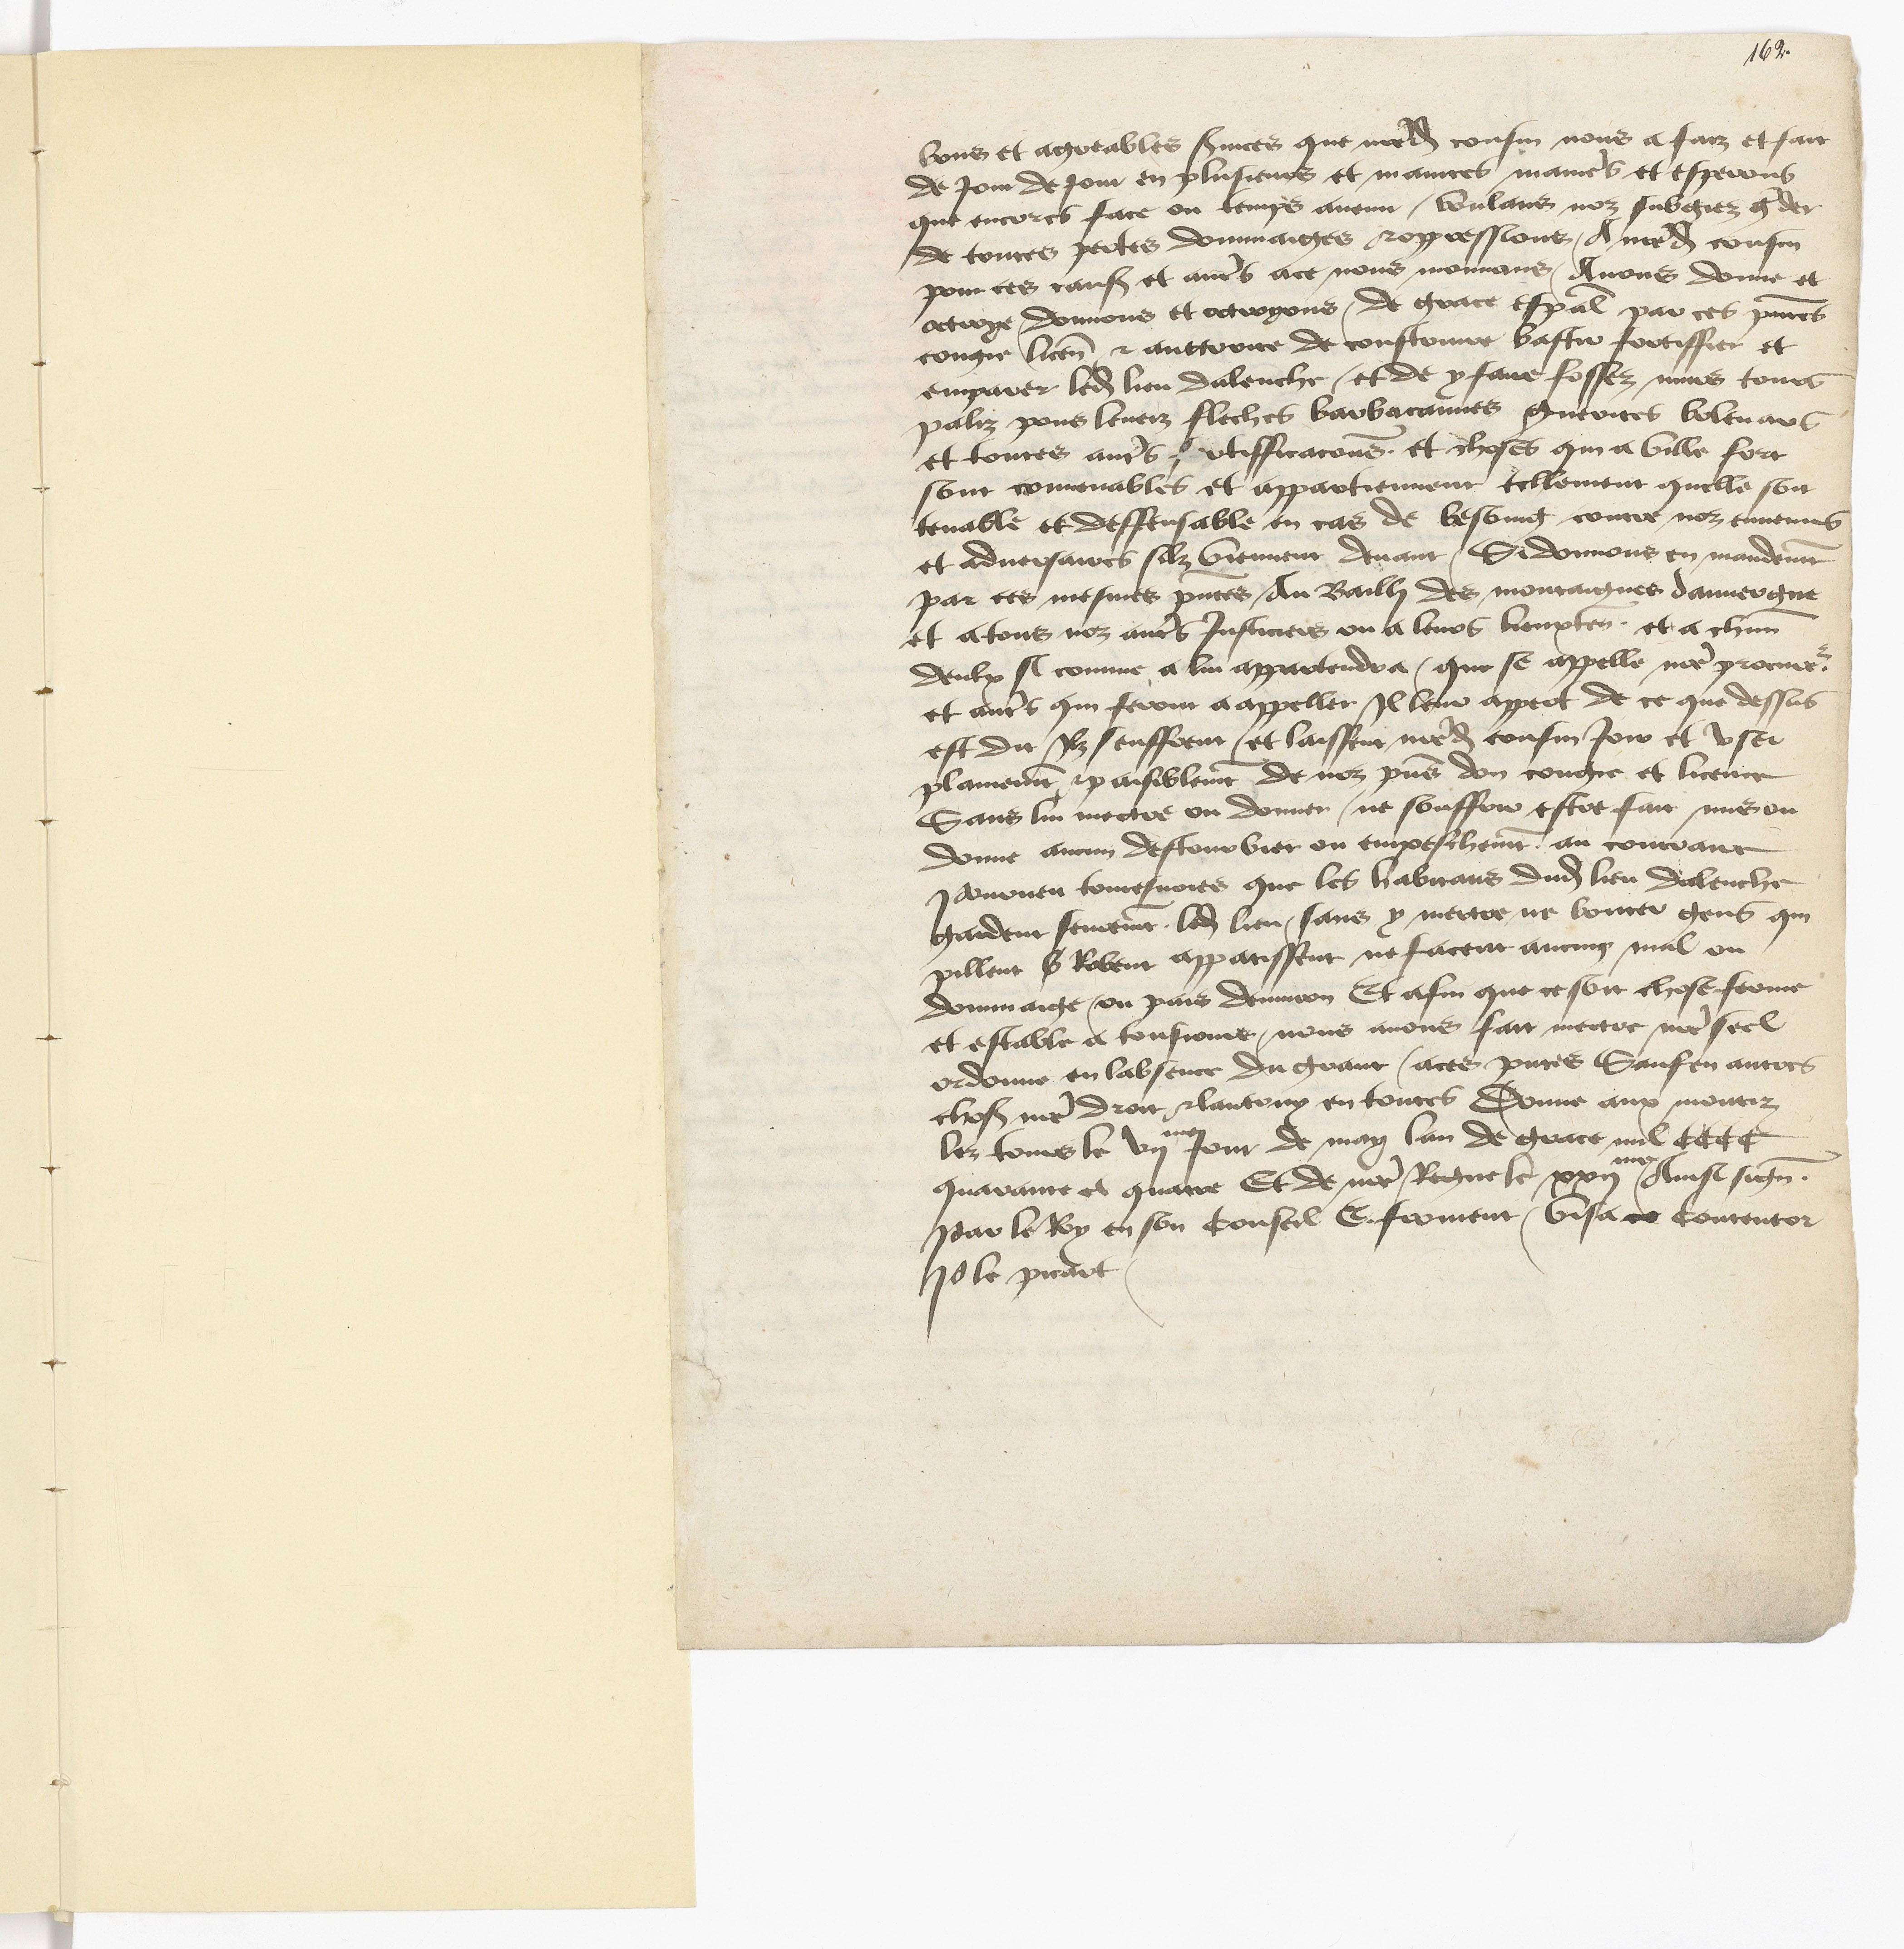 162.
bons et agreables svices que nredit cousin nous a faiz et fait
de jour de jour en plusieurs et maintes manies et esperons
que encores face ou temps avenir / voulans noz subgiez gder
de toutes pertes dommaiges & oppressions / A nredit cousin
pour ces causes et autrs ace nous mouvans / Avons donne et
octroye / donnons et octroyons / de grace espal par ces pntes
congie licen & auctorite de construire bastir fortiffier et
emparer led lieu dalenche / et de y faire fossez murs tours
paliz pons leveiz fleches barbacannes guerites bolevars
et toutes autrs fortifficacons et choses qui a ville fort
sont convenables et appartiennent tellement quelle soit
tenable et deffensable en cas de besoing contre noz ennemis
et adversaires silz viennent devant / Si donnons en mandemt
par ces mesmes pntes / Au Bailli des montaignes dauvergne
et atous noz autrs Justiciers ou a leurs lieuxten et a chun
deulx si comme a lui appartendra / que se appelle nre procur
et autrs qui feront a appeller Il leur appert de ce que dessus
est dit Ilz seuffrent / et laissent nred cousin Joir et user
plainemt & paisiblemt de noz pns don congie et licence
Sans lui mectre ou donner / ne souffrir estre fait mis ou
donne aucun destourbier ou empeschemt au contraire
Pourveu toutesvoies que les habitans dud lieu dalenche
gardent seuremt led lieu / sans y mectre ne bouter gens qui
pillent Robent appatissent ne facent aucun mal ou
dommaige / ou pais denviron Et afin que ce soit chose ferme
et estable a tousiours / nous avons fait mectre nre seel
ordonne en labsence du grant / aces pntes Sauf en autres
choses nre droit & lautruy en toutes Donne aux montiz
lez tours le vij me Jour de may lan de grace mil CCCC
quarante et quatre Et de nre Regne le xxij me / Ainsi sign
Par le Roy en son Conseil E. froment / Visa Contentor
P le picart